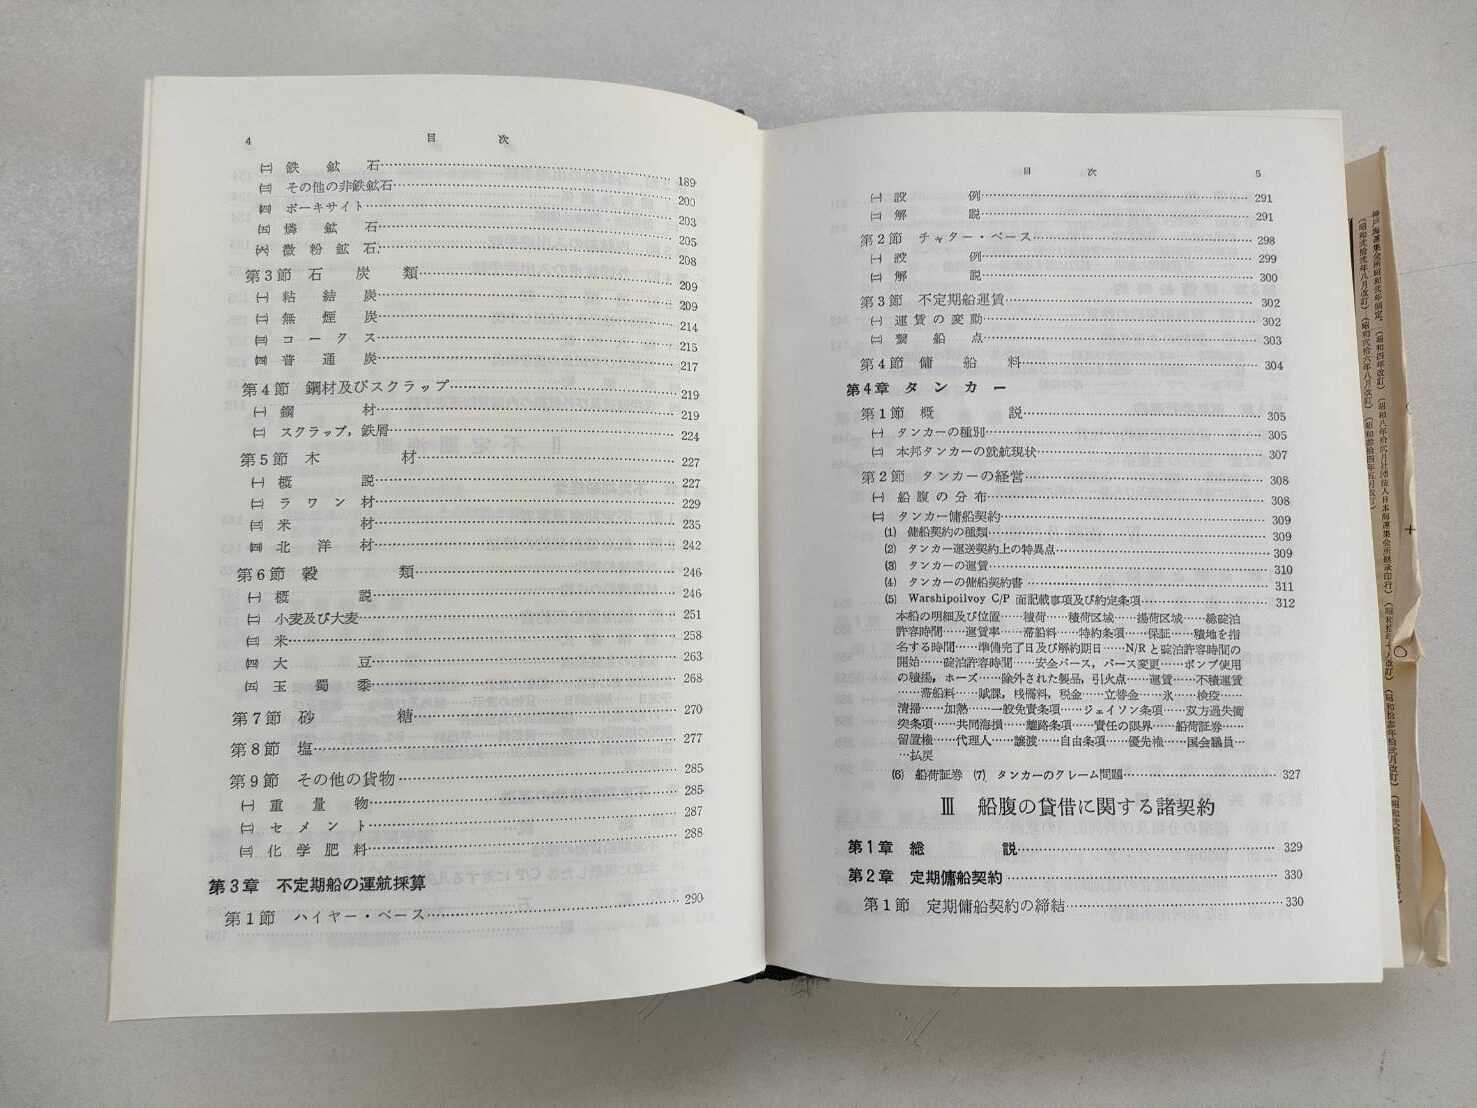 4 目 次
㈡ 鉄鉱石 189
㈢ その他の非鉄鉱石 200
㈣ ボーキサイト 203
㈤ 燐鉱石 205
㈥ 微粉鉱石 208
第3節 石炭類 209
㈠ 粘結炭 209
㈡ 無煙炭 214
㈢ コークス 215
㈣ 普通炭 217
第4節 鋼材及びスクラップ 219
㈠ 鋼材 219
㈡ スクラップ，鉄屑 224
第5節 木材 227
㈠ 概説 227
㈡ ラワン材 229
㈢ 米材 235
㈣ 北洋材 242
第6節 穀類 246
㈠ 概説 246
㈡ 小麦及び大麦 251
㈢ 米 258
㈣ 大豆 263
㈤ 玉蜀黍 268
第7節 砂糖 270
第8節 塩 277
第9節 その他の貨物 285
㈠ 重量物 285
㈡ セメント 287
㈢ 化学肥料 288
第3章 不定期船の運航採算
第1節 ハイヤー・ベース 290
目 次 5
㈠ 設例 291
㈡ 解説 291
第2節 チャター・ベース 298
㈠ 設例 299
㈡ 解説 300
第3節 不定期船運賃 302
㈠ 運賃の変動 302
㈡ 繫船点 303
第4節 傭船料 304
第4章 タンカー
第1節 概説 305
㈠ タンカーの種別 305
㈡ 本邦タンカーの就航現状 307
第2節 タンカーの経営 308
㈠ 船腹の分布 308
㈡ タンカー傭船契約 309
(1) 傭船契約の種類 309
(2) タンカー運送契約上の特異点 309
(3) タンカーの運賃 310
(4) タンカーの傭船契約書 311
(5) Warshipoilvoy C/P 面記載事項及び約定条項 312
本船の明細及び位置……積荷……積荷区域……揚荷区域……総碇泊
許容時間……運賃率……滞船料……特約条項……保証……積地を指
名する時間……準備完了日及び解約期日……N/Rと碇泊許容時間の
開始……碇泊許容時間……安全バース，バース変更……ポンプ使用
の積揚，ホーズ……除外された製品，引火点……運賃……不積運賃
……滞船料……賦課，桟橋料，税金……立替金……氷……検疫……
清掃……加熱……一般免責条項……ジェイソン条項……双方過失衝
突条項……共同海損……離路条項……責任の限界……船荷証券……
留置権……代理人……譲渡……自由条項……優先権……国会議員…
…払戻
(6) 船荷証券 (7) タンカーのクレーム問題 327
Ⅲ 船腹の貸借に関する諸契約
第1章 総説 329
第2章 定期傭船契約 330
第1節 定期傭船契約の締結 330